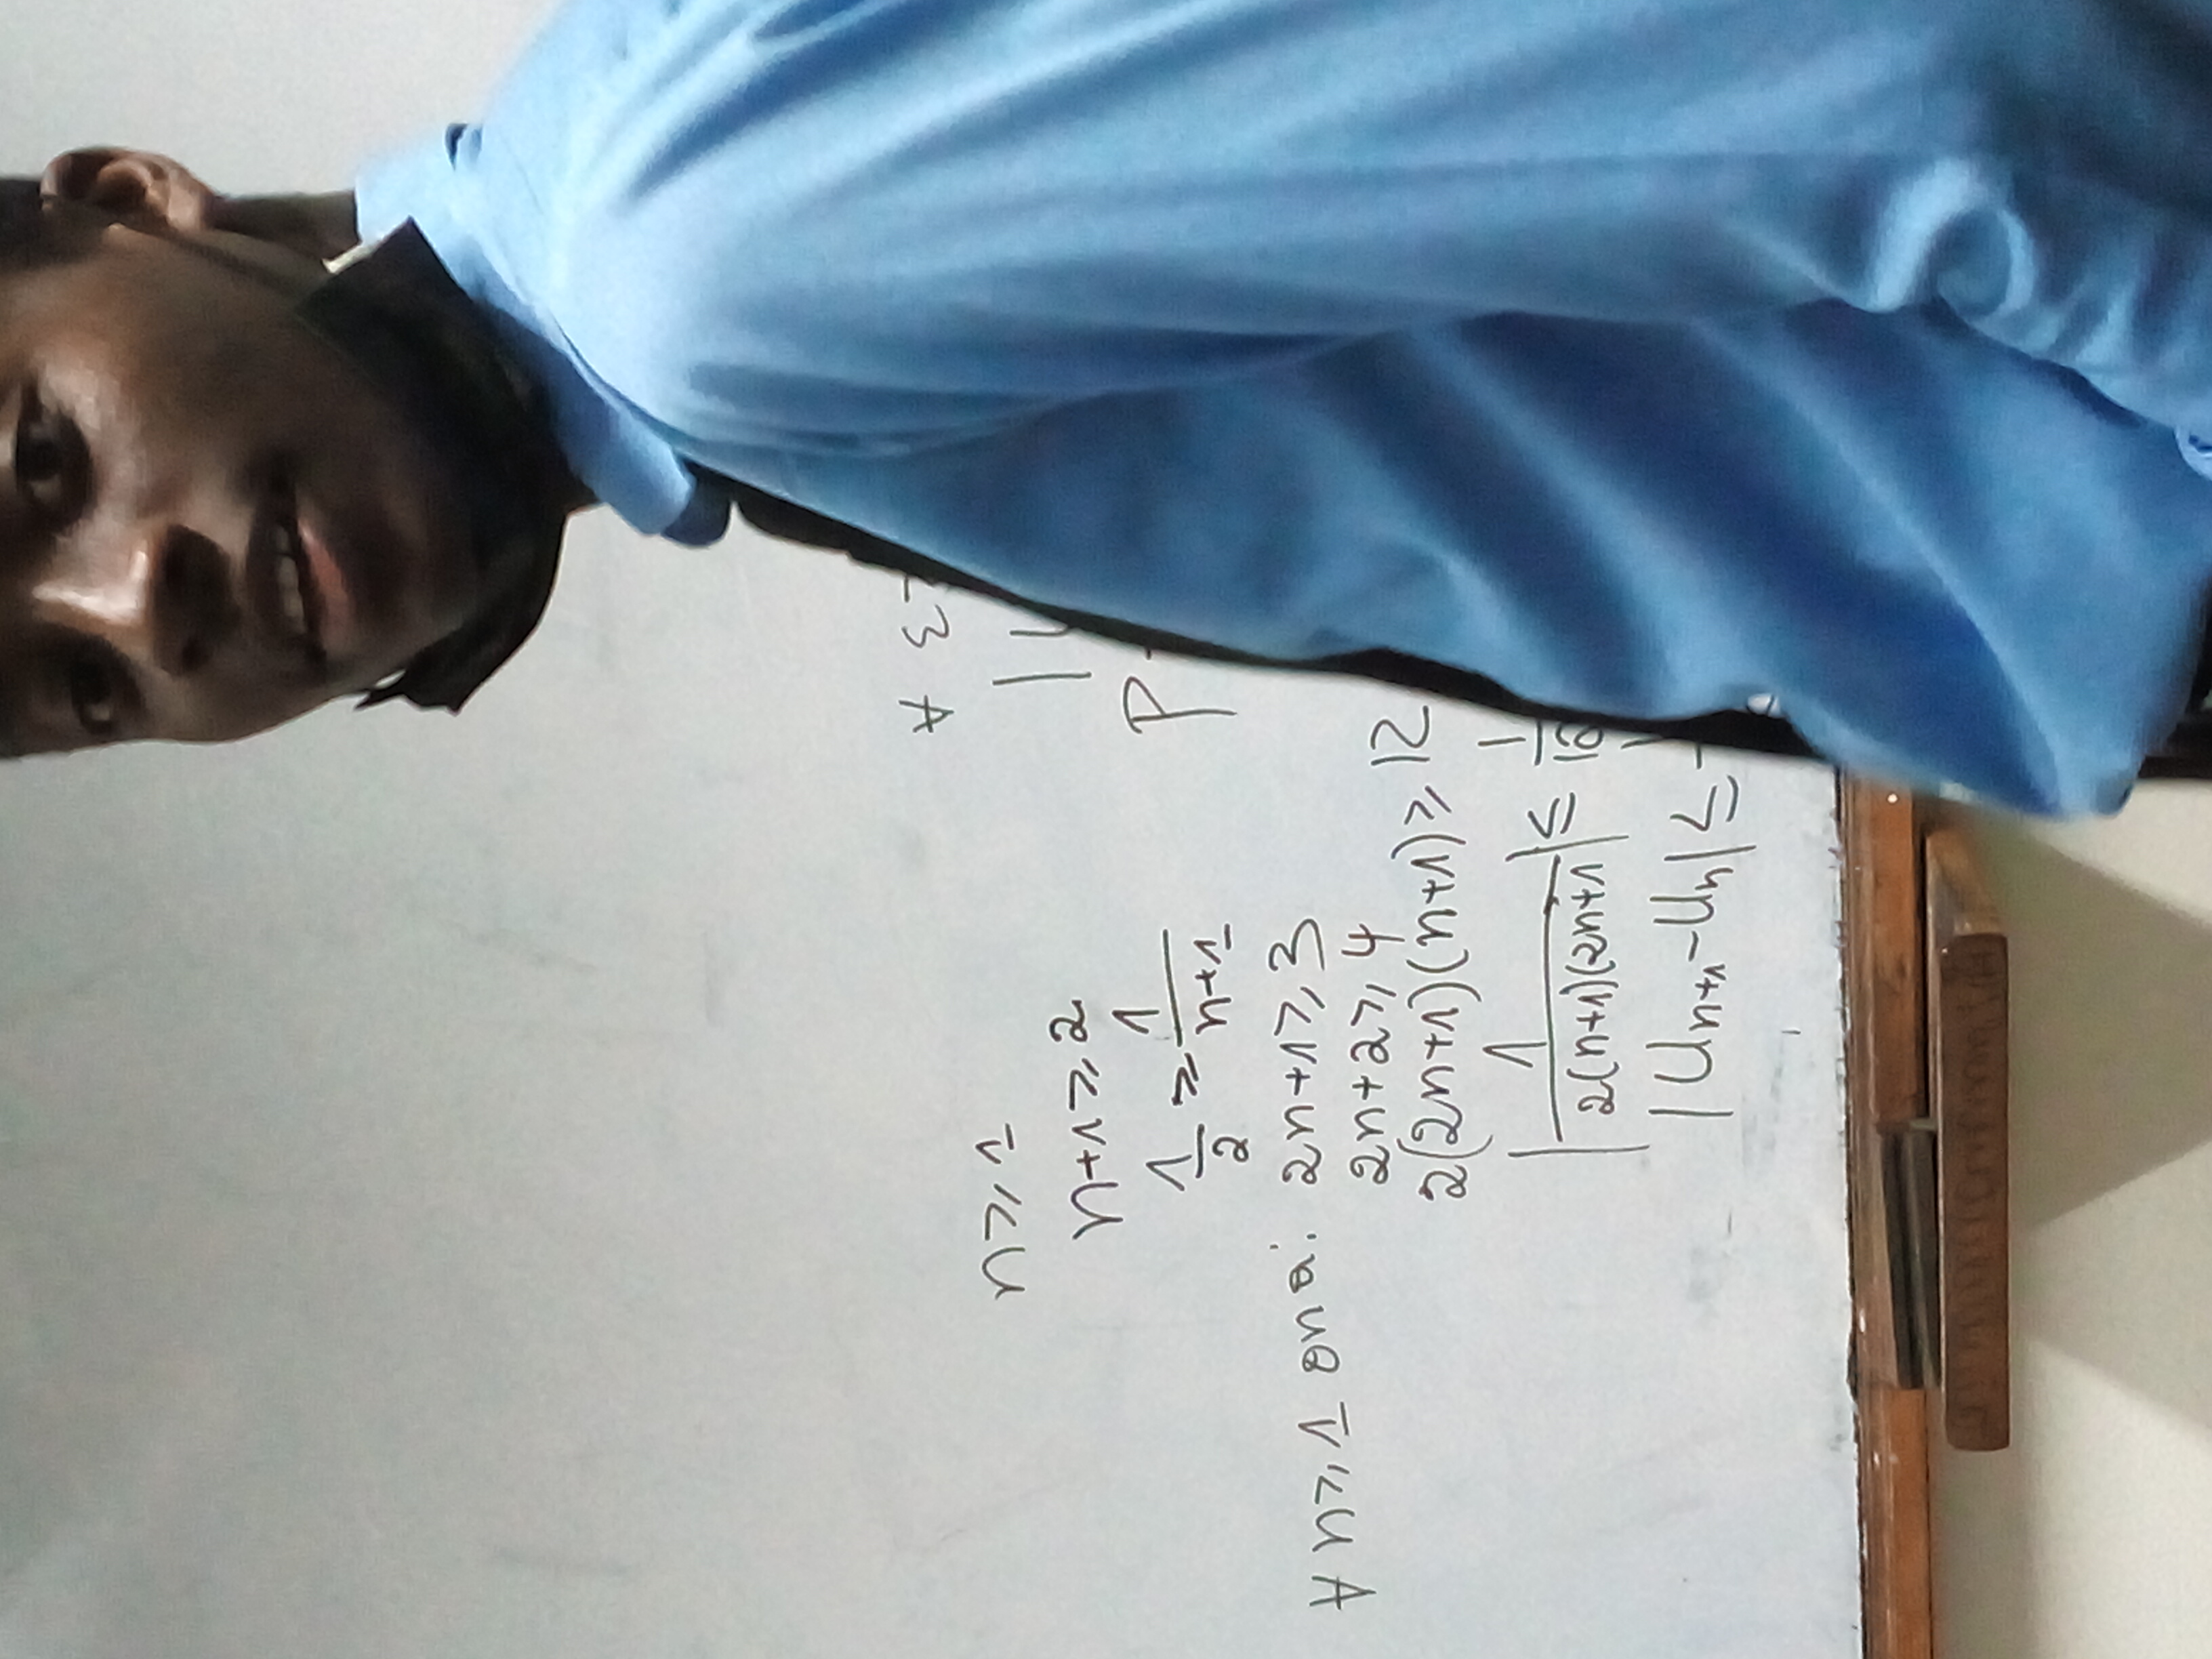 n ≥ 1
n+1 ≥ 2
1/2 ≥ 1/(n+1)
∀ n ≥ 1 on a : 2n+1 ≥ 3
2n+2 ≥ 4
2(2n+1)(n+1) ≥ 12
|1/(2(n+1)(2n+1)| ≤ 1/12
|Un+1 - Un| ≤
∀ ε
|
P